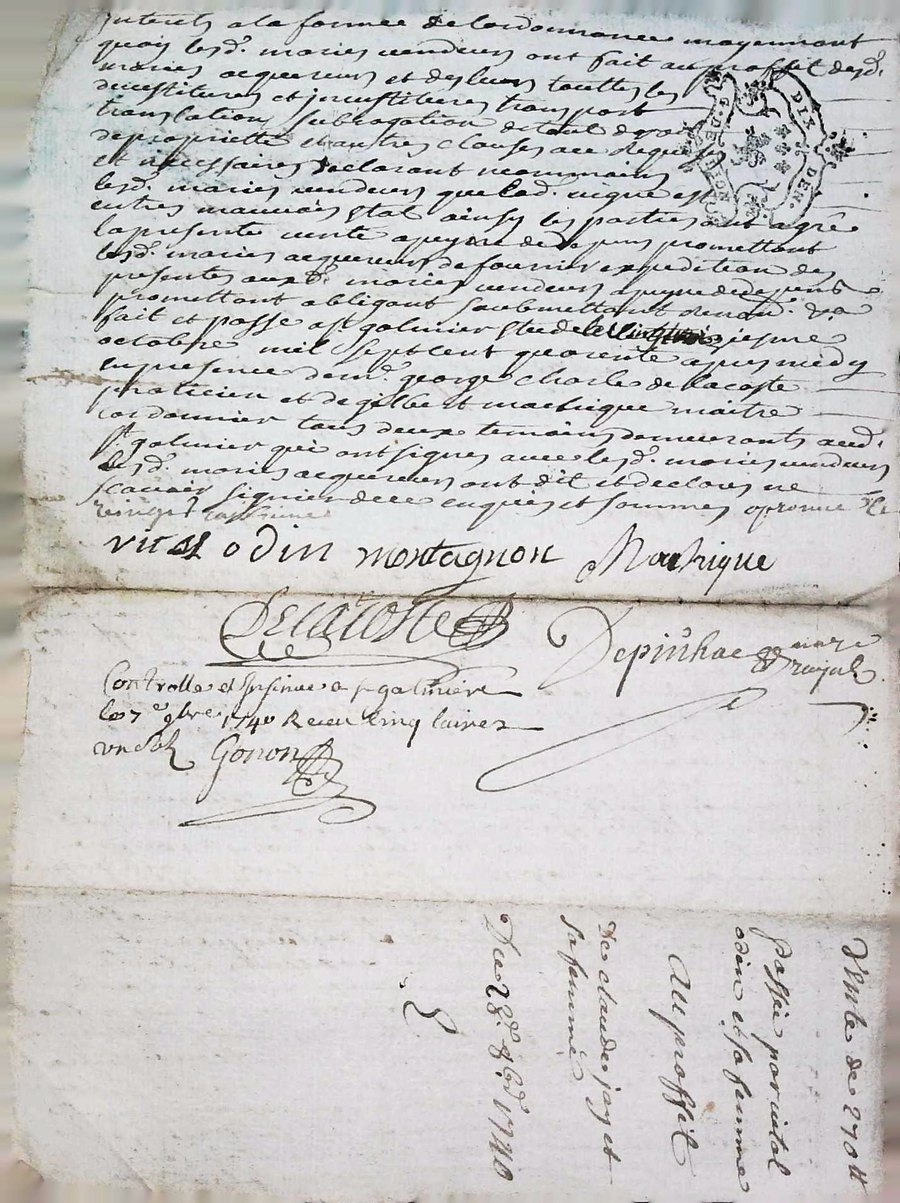 Interets a la forme de l'ordonnance moyennant
quoy lesd. maries vendeurs ont fait au proffit desd.
maries acquereurs et des leurs touttes les
devestitures et investitures transport
translation subrogation de tout droit
de propriette et autres clauses a ce requises
et necessaires declarant neanmoins
lesd. maries vendeurs que lad. vigne est
en tres mauvais etat ainsy les parties ont agrée
la presente vente a peyne de depens promettant
lesd. maries acquereurs de fournir expedition des
presentes auxd. maries vendeurs a peyne de depents
promettant obligeant soubmettant renon.
fait et passe a st galmier etude le vingt
octobre mil sept cent quarente apres midy
en presence de mr. george charle de lacoste
praticien et de gilbert matrique maitre
cordonnier tous deux temoins demeurants aud.
st galmier qui ont signes avec lesd. maries vendeurs
lesd. maries acquereurs ont dit et declares ne
scavoir signier de ce enquis et sommes
vital odin montagnon Matrique
Delacoste
Depinhac
royal
Controlle et Insinue a st galmier
le 7e 9bre 1740 Receu cinq livres
un sol Gonon
GENE
DIX DEN.
Vente de 270 tt
passée par vital
odin et sa femme
Au proffit
De claude jay et
sa femme
Du 28e 8bre 1740